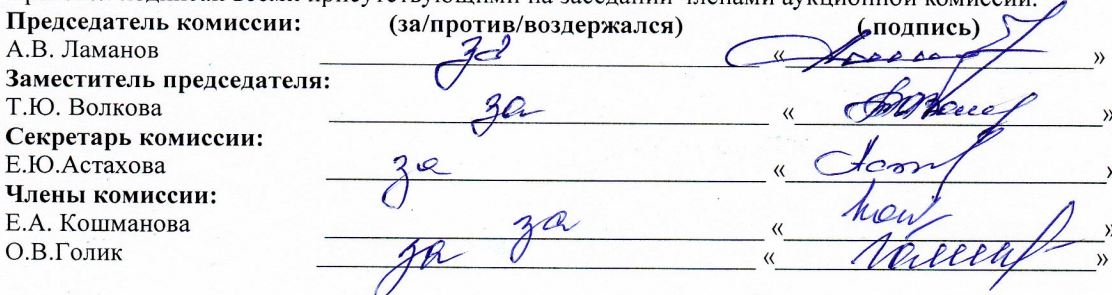 подписан всеми присутствующими на заседании членами аукционной комиссии.
Председатель комиссии: (за/против/воздержался) (подпись)
А.В. Ламанов за « »
Заместитель председателя:
Т.Ю. Волкова за « »
Секретарь комиссии:
Е.Ю.Астахова за « »
Члены комиссии:
Е.А. Кошманова за « »
О.В.Голик за « »